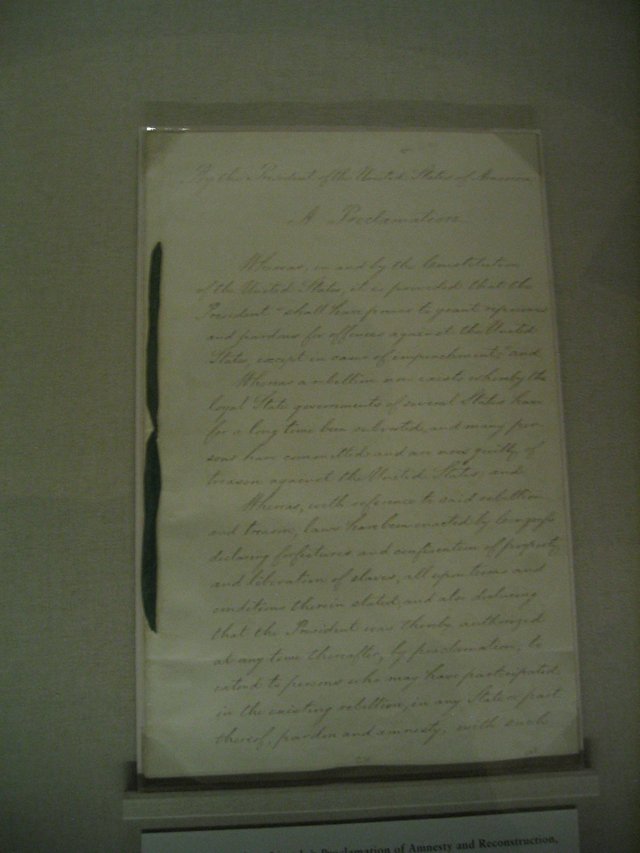 By the President of the United States of America
A Proclamation
Whereas, in and by the Constitution
of the United States, it is provided that the
President "shall have power to grant reprieves
and pardons for offences against the United
States, except in cases of impeachment;" and
Whereas a rebellion now exists whereby the
loyal State governments of several States have
for a long time been subverted, and many per-
sons have committed and are now guilty of
treason against the United States; and
Whereas, with reference to said rebellion
and treason, laws have been enacted by Congress
declaring forfeitures and confiscation of property
and liberation of slaves, all upon terms and
conditions therein stated, and also declaring
that the President was thereby authorized
at any time thereafter, by proclamation, to
extend to persons who may have participated
in the existing rebellion, in any State or part
thereof, pardon and amnesty, with such
Proclamation of Amnesty and Reconstruction,